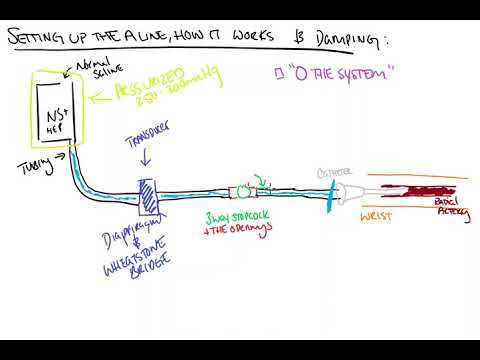 SETTING UP THE A LINE, HOW IT WORKS & DAMPING:
NORMAL
SALINE
NS+
HEP
PRESSURIZED
250-300mmHg
"O THE SYSTEM"
TUBING
TRANSDUCER
DIAPHRAGM
&
WHEATSTONE
BRIDGE
3WAY STOPCOCK
+THE OPENINGS
CATHETER
WRIST
RADIAL
ARTERY